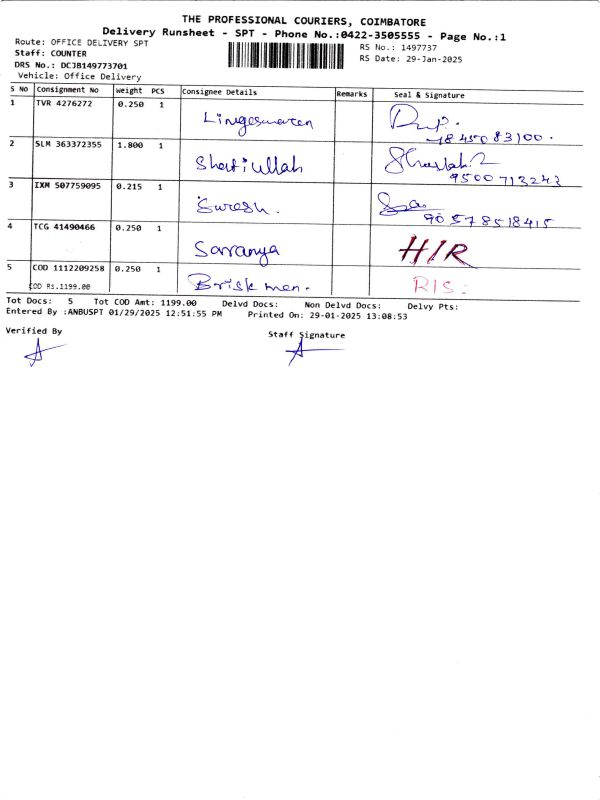 THE PROFESSIONAL COURIERS, COIMBATORE
Delivery Runsheet - SPT - Phone No.:0422-3505555 - Page No.:1
Route: OFFICE DELIVERY SPT
Staff: COUNTER
DRS No.: DCJB149773701
Vehicle: Office Delivery
RS No.: 1497737
RS Date: 29-Jan-2025
S No Consignment No Weight PCS Consignee Details Remarks Seal & Signature
1 TVR 4276272 0.250 1 Lingeswaren
2 SLM 363372355 1.800 1 Shafiullah
9500713243
3 IXM 507759095 0.215 1 Suresh.
4 TCG 41490466 0.250 1 Sarranya H/R
5 COD 1112209258 0.250 1 Brisk men. RIS:
COD Rs.1199.00
Tot Docs: 5 Tot COD Amt: 1199.00 Delvd Docs: Non Delvd Docs: Delvy Pts:
Entered By :ANBUSPT 01/29/2025 12:51:55 PM Printed On: 29-01-2025 13:08:53
Verified By Staff Signature